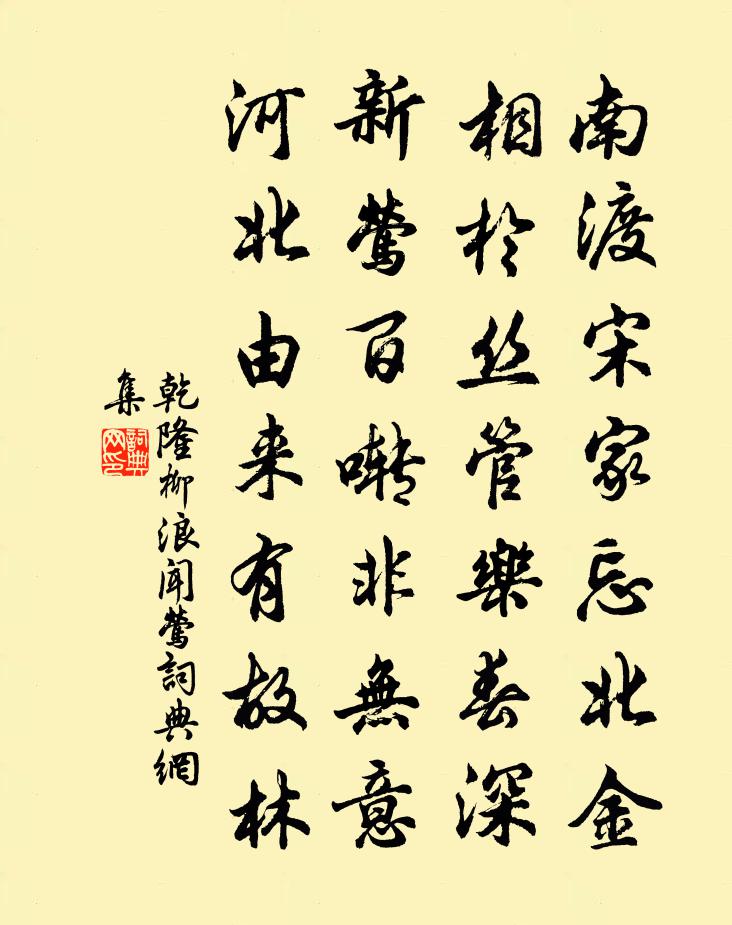 南渡宋家忘北金
相於丝管樂春深
新莺百啭非無意
河北由来有故林
乾隆柳浪闻莺詞典網
集
詞典网印